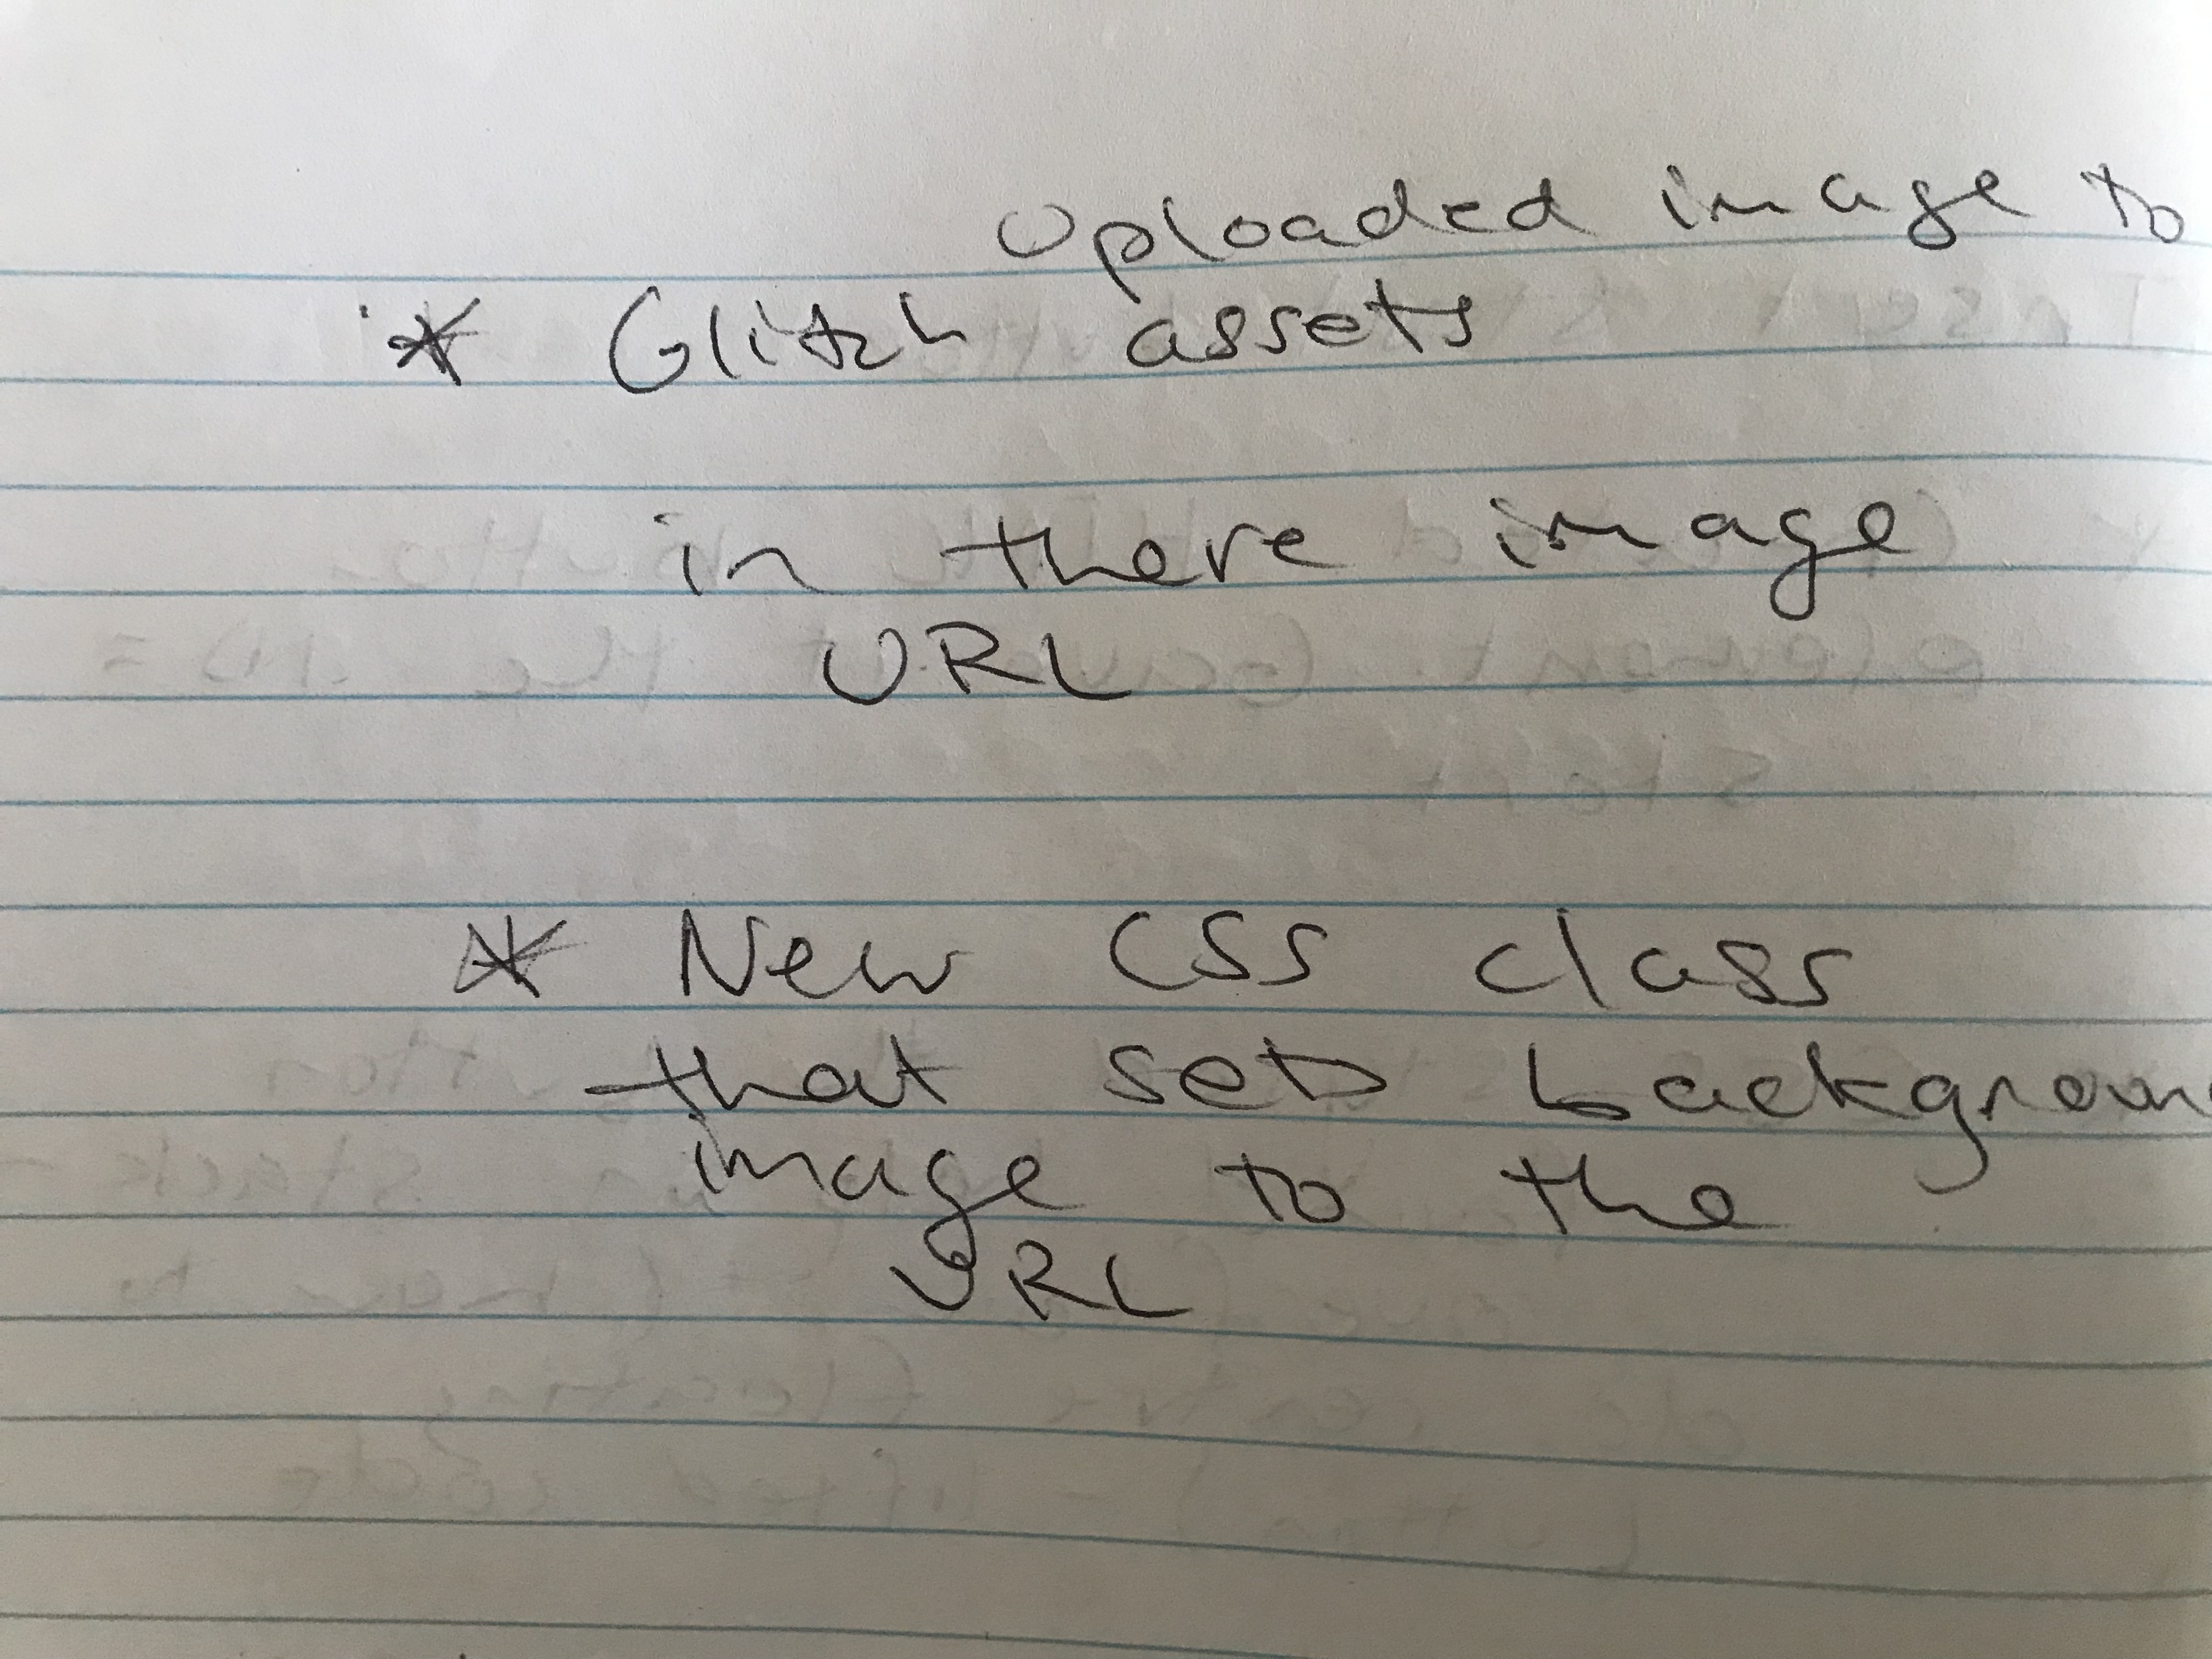 Uploaded image to
* Glitch assets
in there image
URL
* New CSS class
that set backgroun
image to the
URL